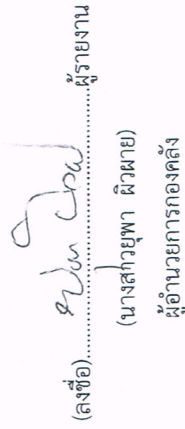 (ลงชื่อ)....................ผู้รายงาน
(นางสาวยุพา ผิวผาย)
ผู้อำนวยการกองคลัง